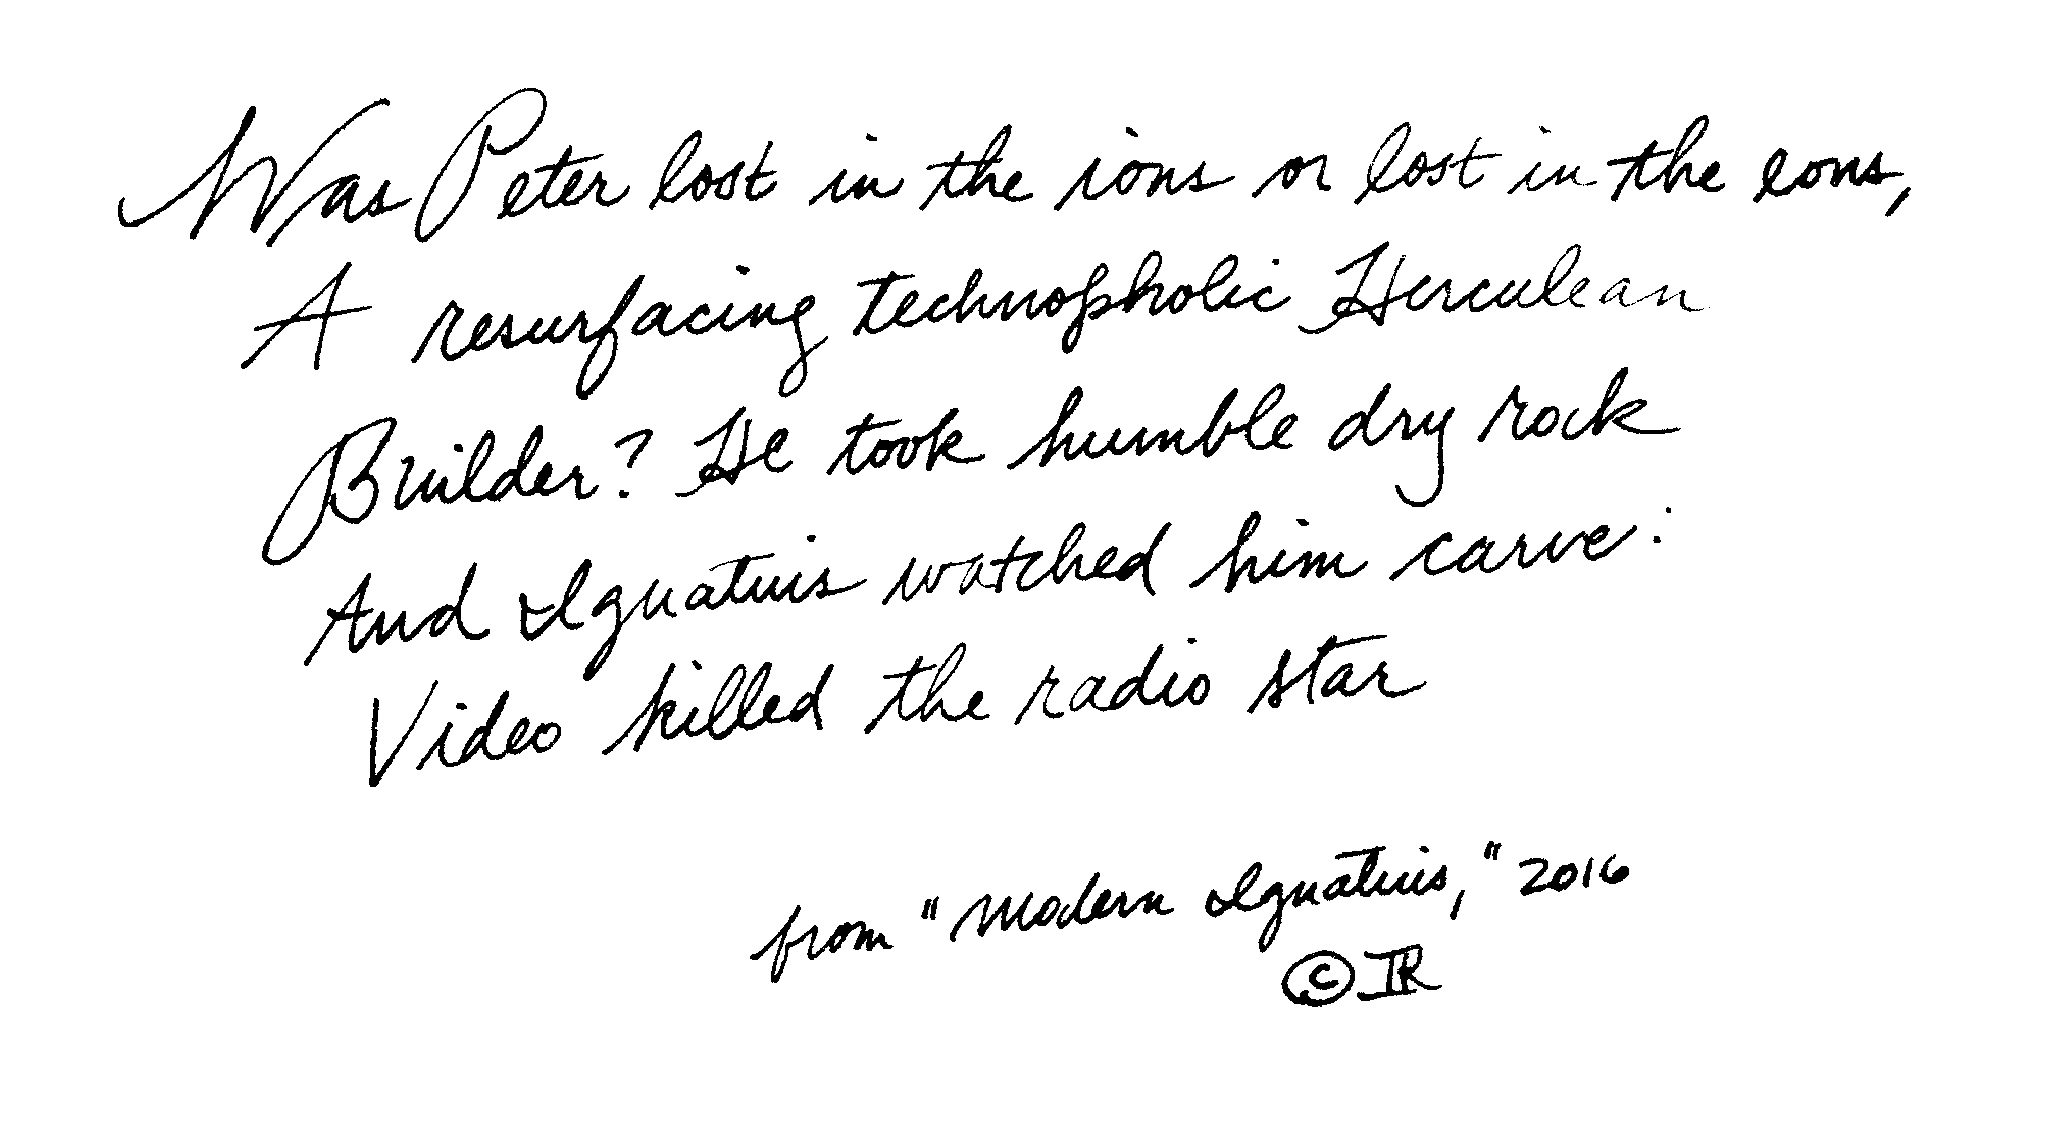 Was Peter lost in the ions or lost in the eons,
A resurfacing technopholic Herculean
Builder? He took humble dry rock
And Ignatius watched him carve:
Video killed the radio star
from "Modern Ignatius," 2016
© IR